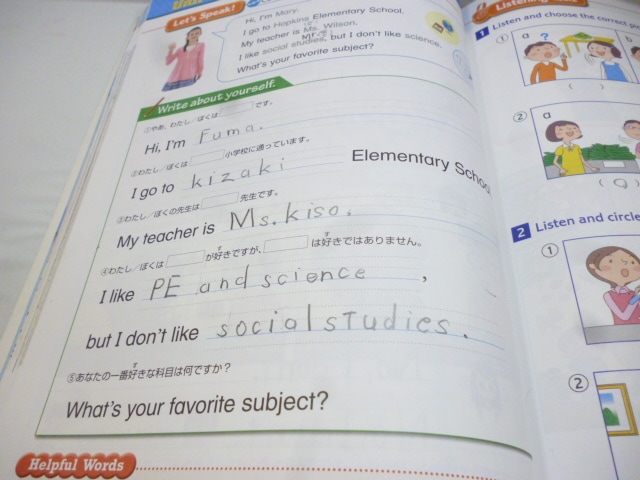 Let's Speak!
Hi, I'm Mary.
I go to Hopkins Elementary School.
My teacher is Ms. Wilson.
I like social studies, but I don't like science.
What's your favorite subject?
Write about yourself.
①やあ、わたし／ぼくは です。
Hi, I'm Fuma.
②わたし／ぼくは 小学校に通っています。
I go to kizaki Elementary School
③わたし／ぼくの先生は 先生です。
My teacher is Ms. kiso.
④わたし／ぼくは が好きですが、 は好きではありません。
I like PE and science ,
but I don't like social studies .
⑤あなたの一番好きな科目は何ですか？
What's your favorite subject?
Helpful Words
1 Listen and choose the correct
① a ? b
( )
② a
( )
2 Listen and circle
①
②